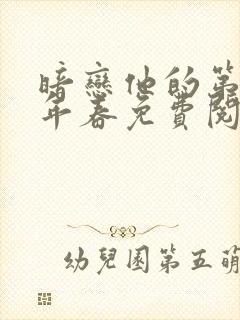 暗戀他的第
年春免費閱
幼兒園第五萌